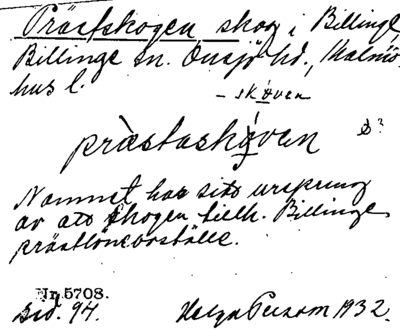 Prästskogen skog i Billinge,
Billinge sn. Onsjö hd., Malmö-
hus l.
- skøven
præstaskøven ?
Namnet har sitt ursprung
av att skogen tillh. Billinge
prästlöneboställe.
Nr 5708.
sid. 94. Helga Persson 1932.